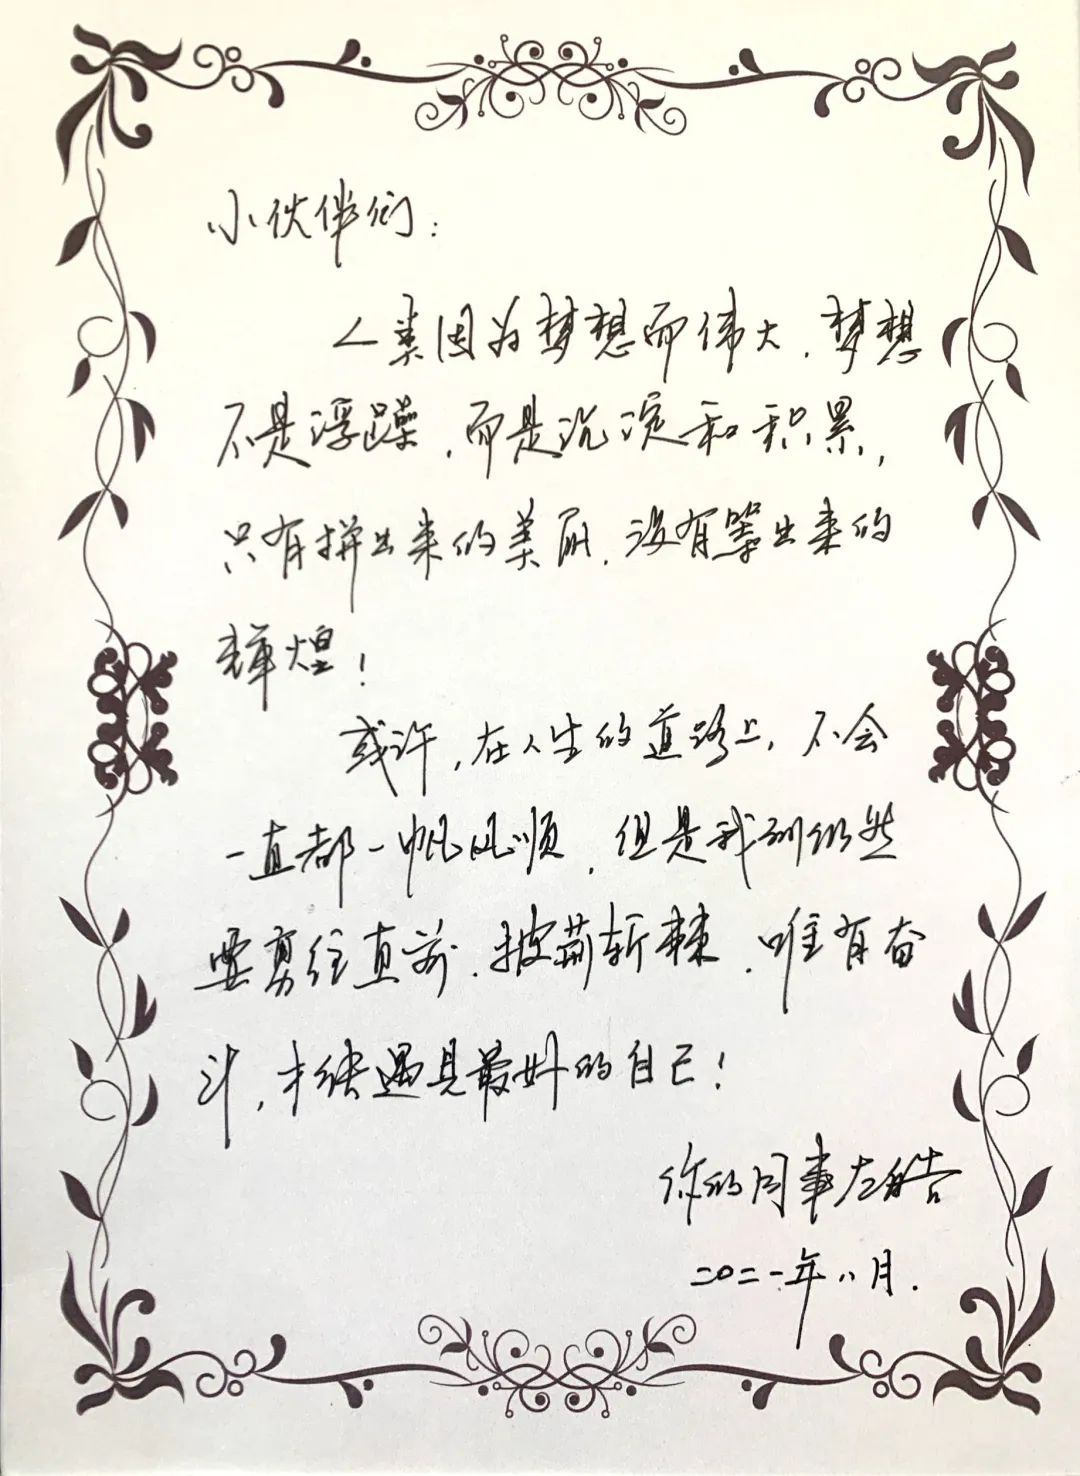 小伙伴们:
人类因为梦想而伟大,梦想
不是浮躁,而是沉淀和积累,
只有拼出来的美丽,没有等出来的
辉煌!
或许,在人生的道路上,不会
一直都一帆风顺,但是我们仍然
要勇往直前,披荆斩棘,唯有奋
斗,才能遇见最好的自己!
你的同事左皓
二〇二一年八月.